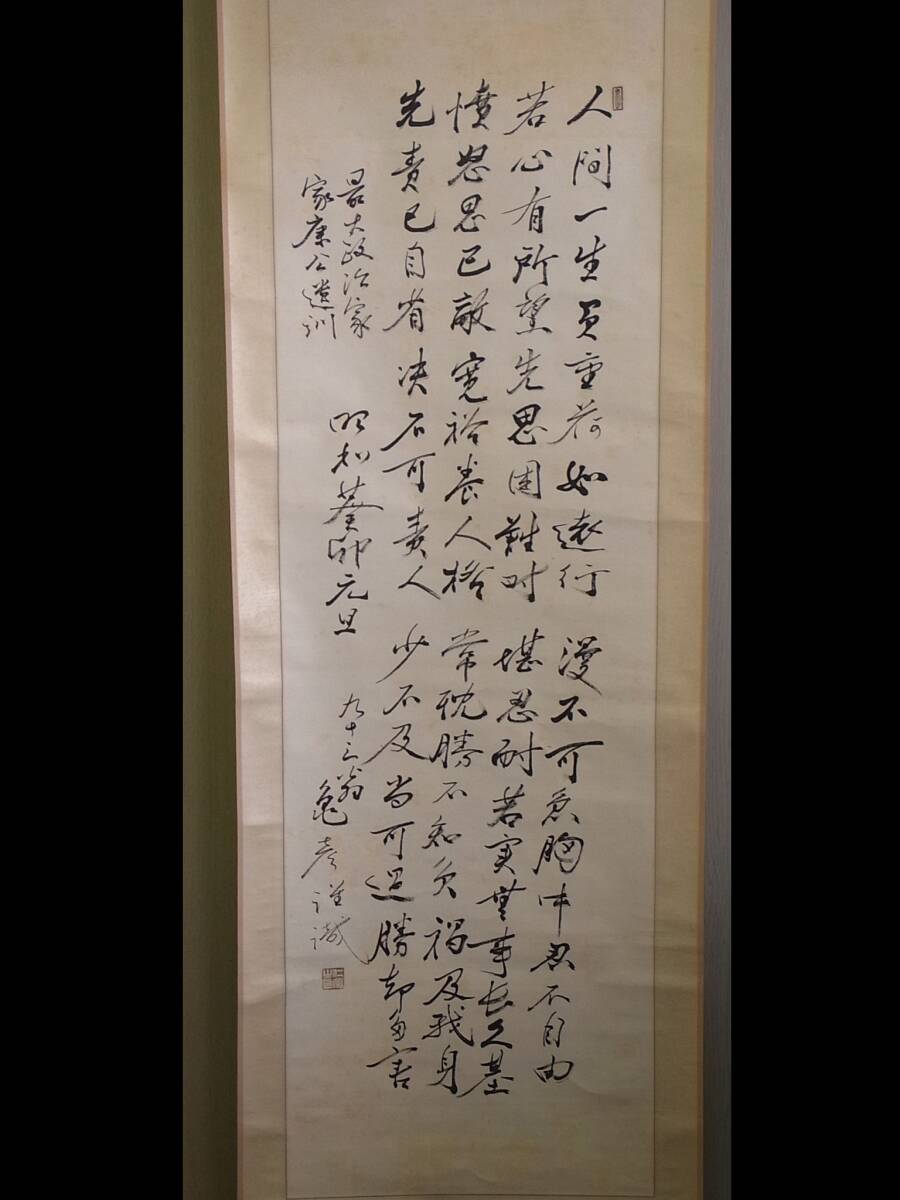 人間一生負重荷如遠行 漫不可急胸中忍不自由
若心有所望先思困難时 堪忍耐若実無事長久基
憤怒思己敵寛裕養人格 常耽勝不知負禍及我身
先責己自省决不可責人 少不及尚可過勝却多害
最大政治家
家康公遺訓
昭和癸卯元旦
九十三翁 亀彦謹識